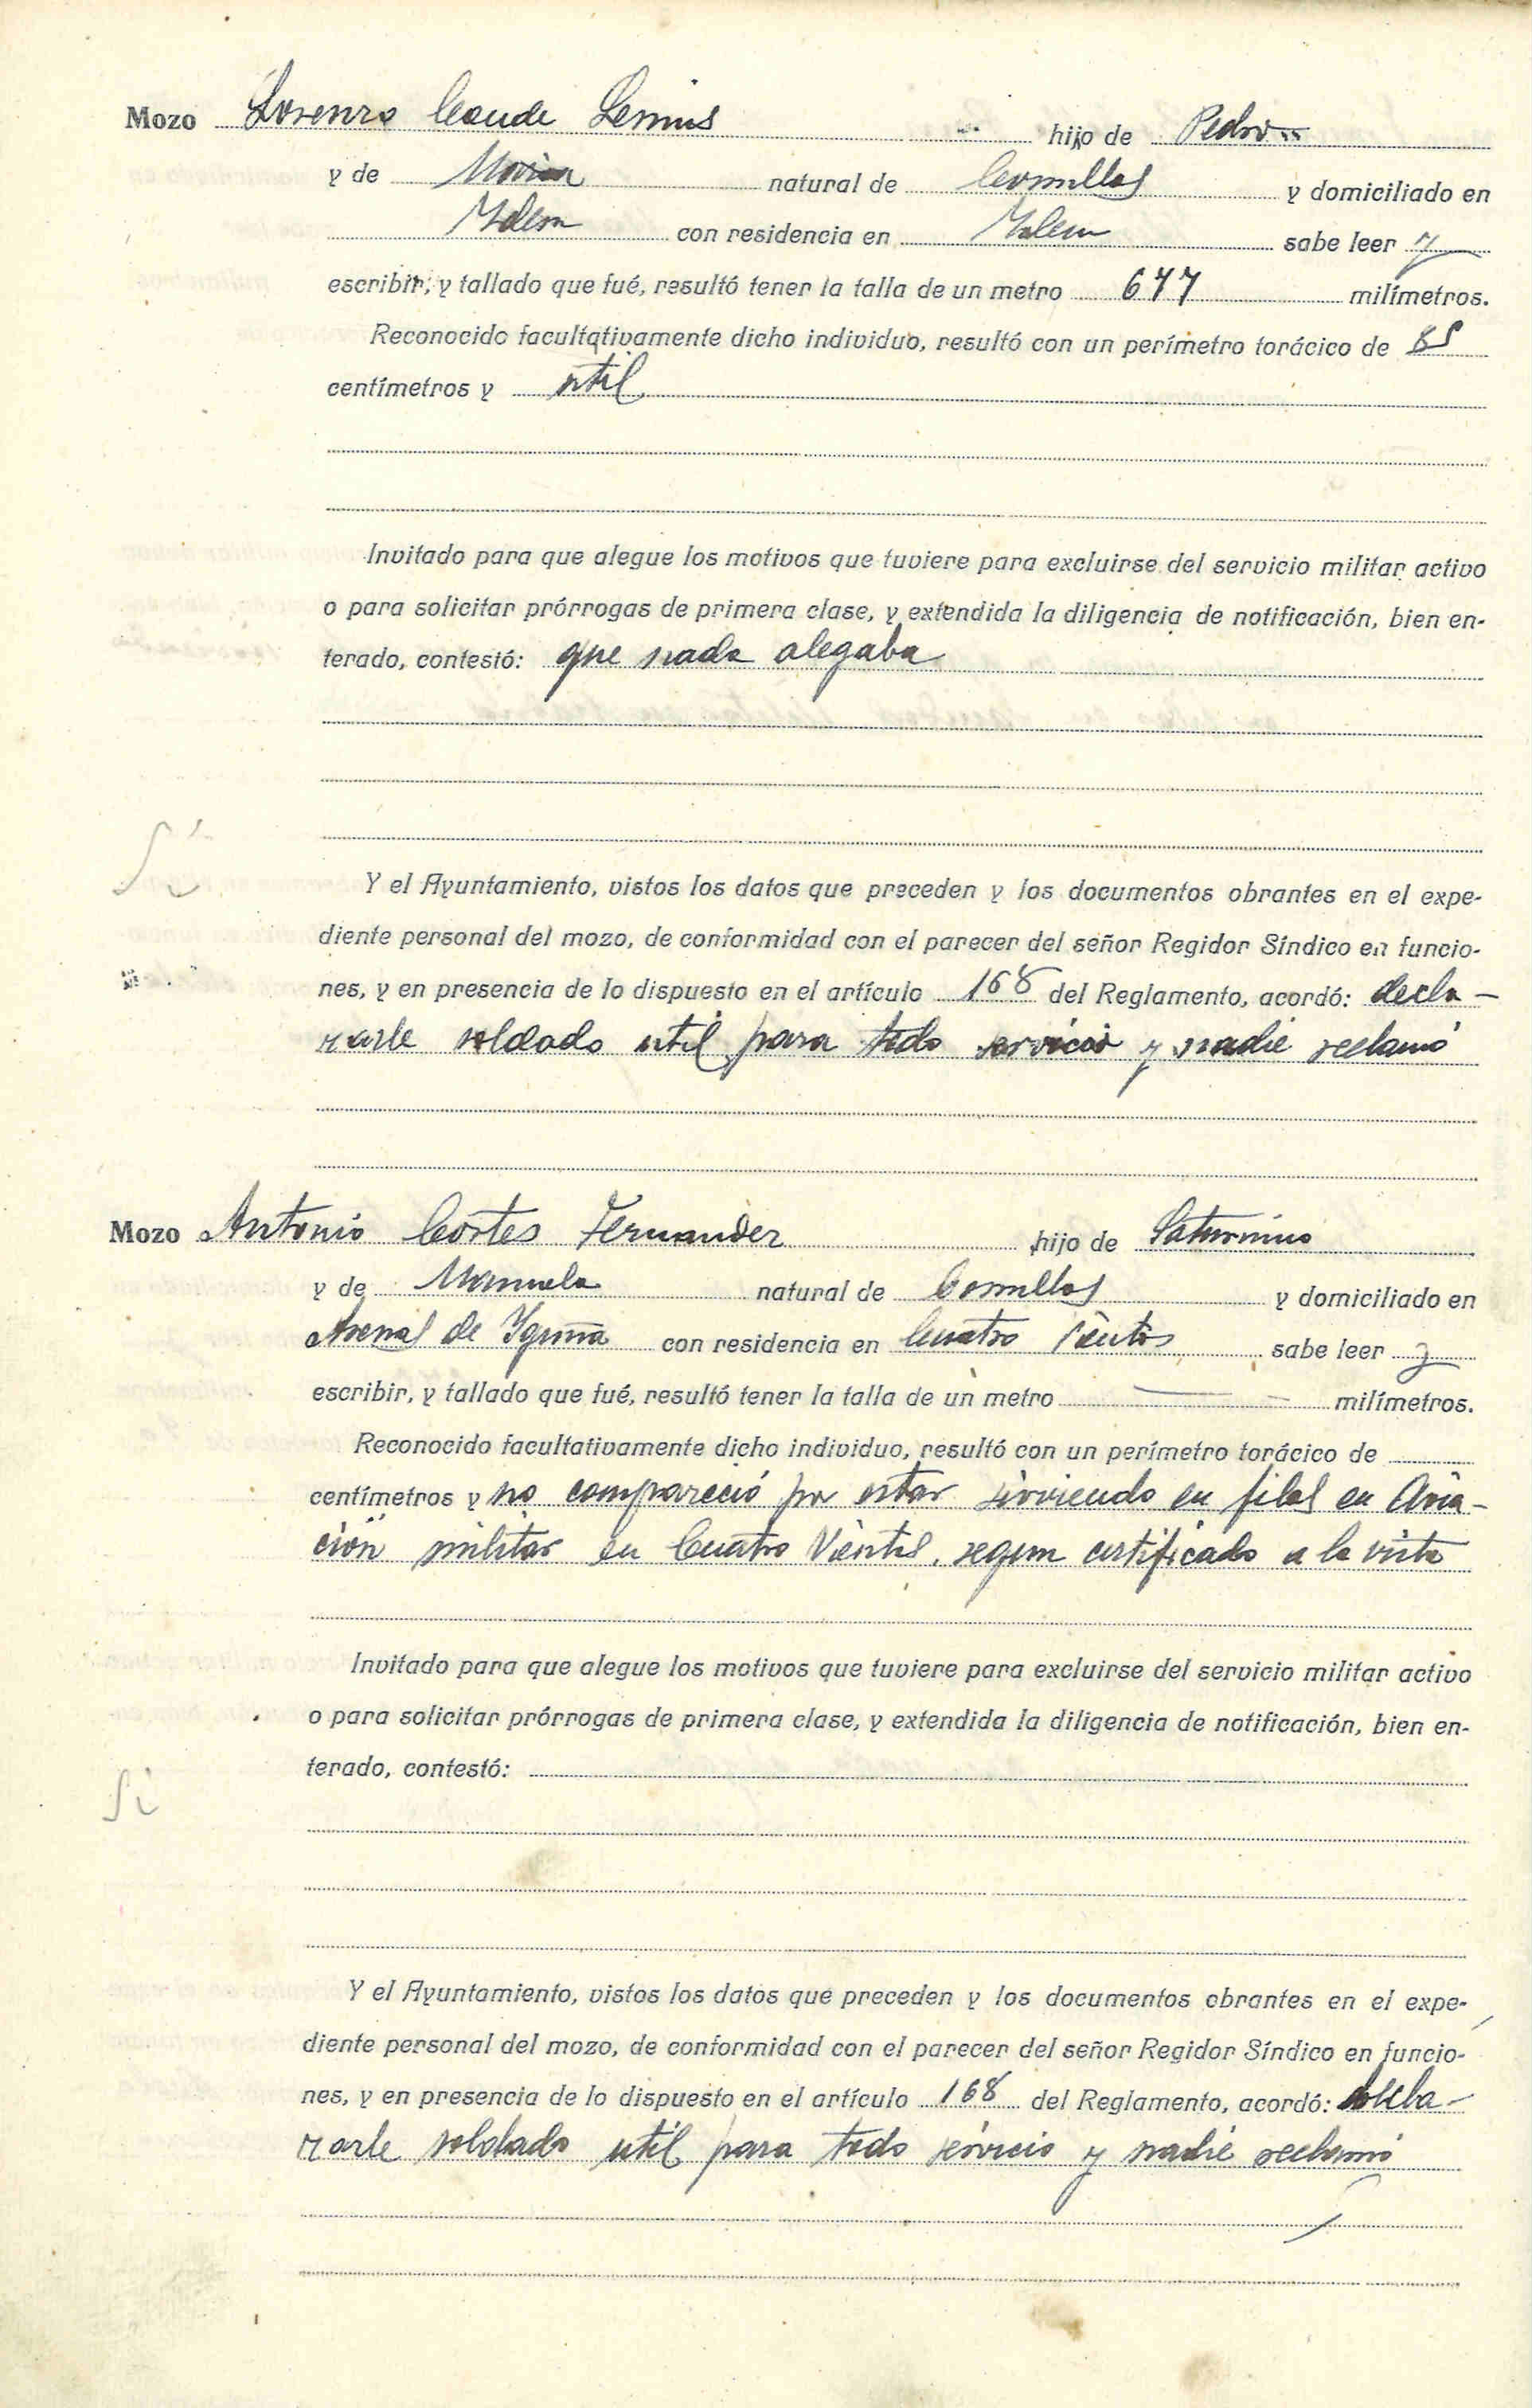 Mozo Lorenzo Conde Lemus hijo de Pedro
y de Maria natural de Comillas y domiciliado en
Idem con residencia en Idem sabe leer y
escribir, y tallado que fué, resultó tener la talla de un metro 677 milímetros.
Reconocido facultativamente dicho individuo, resultó con un perímetro torácico de 85
centímetros y util
Invitado para que alegue los motivos que tuviere para excluirse del servicio militar activo
o para solicitar prórrogas de primera clase, y extendida la diligencia de notificación, bien en-
terado, contestó: que nada alegaba
Si
Y el Ayuntamiento, vistos los datos que preceden y los documentos obrantes en el expe-
diente personal del mozo, de conformidad con el parecer del señor Regidor Síndico en funcio-
nes, y en presencia de lo dispuesto en el artículo 168 del Reglamento, acordó: decla-
rarle soldado util para todo servicio y nadie reclamó
Mozo Antonio Cortes Fernandez hijo de Saturnino
y de Manuela natural de Comillas y domiciliado en
Arenas de Iguña con residencia en Cuatro Vientos sabe leer y
escribir, y tallado que fué, resultó tener la talla de un metro — milímetros.
Reconocido facultativamente dicho individuo, resultó con un perímetro torácico de
centímetros y no compareció por estar sirviendo en filas en Avia-
ción militar en Cuatro Vientos, segun certificado a la vista
Invitado para que alegue los motivos que tuviere para excluirse del servicio militar activo
o para solicitar prórrogas de primera clase, y extendida la diligencia de notificación, bien en-
terado, contestó:
Si
Y el Ayuntamiento, vistos los datos que preceden y los documentos obrantes en el expe-
diente personal del mozo, de conformidad con el parecer del señor Regidor Síndico en funcio-
nes, y en presencia de lo dispuesto en el artículo 168 del Reglamento, acordó: decla-
rarle soldado util para todo servicio y nadie reclamó